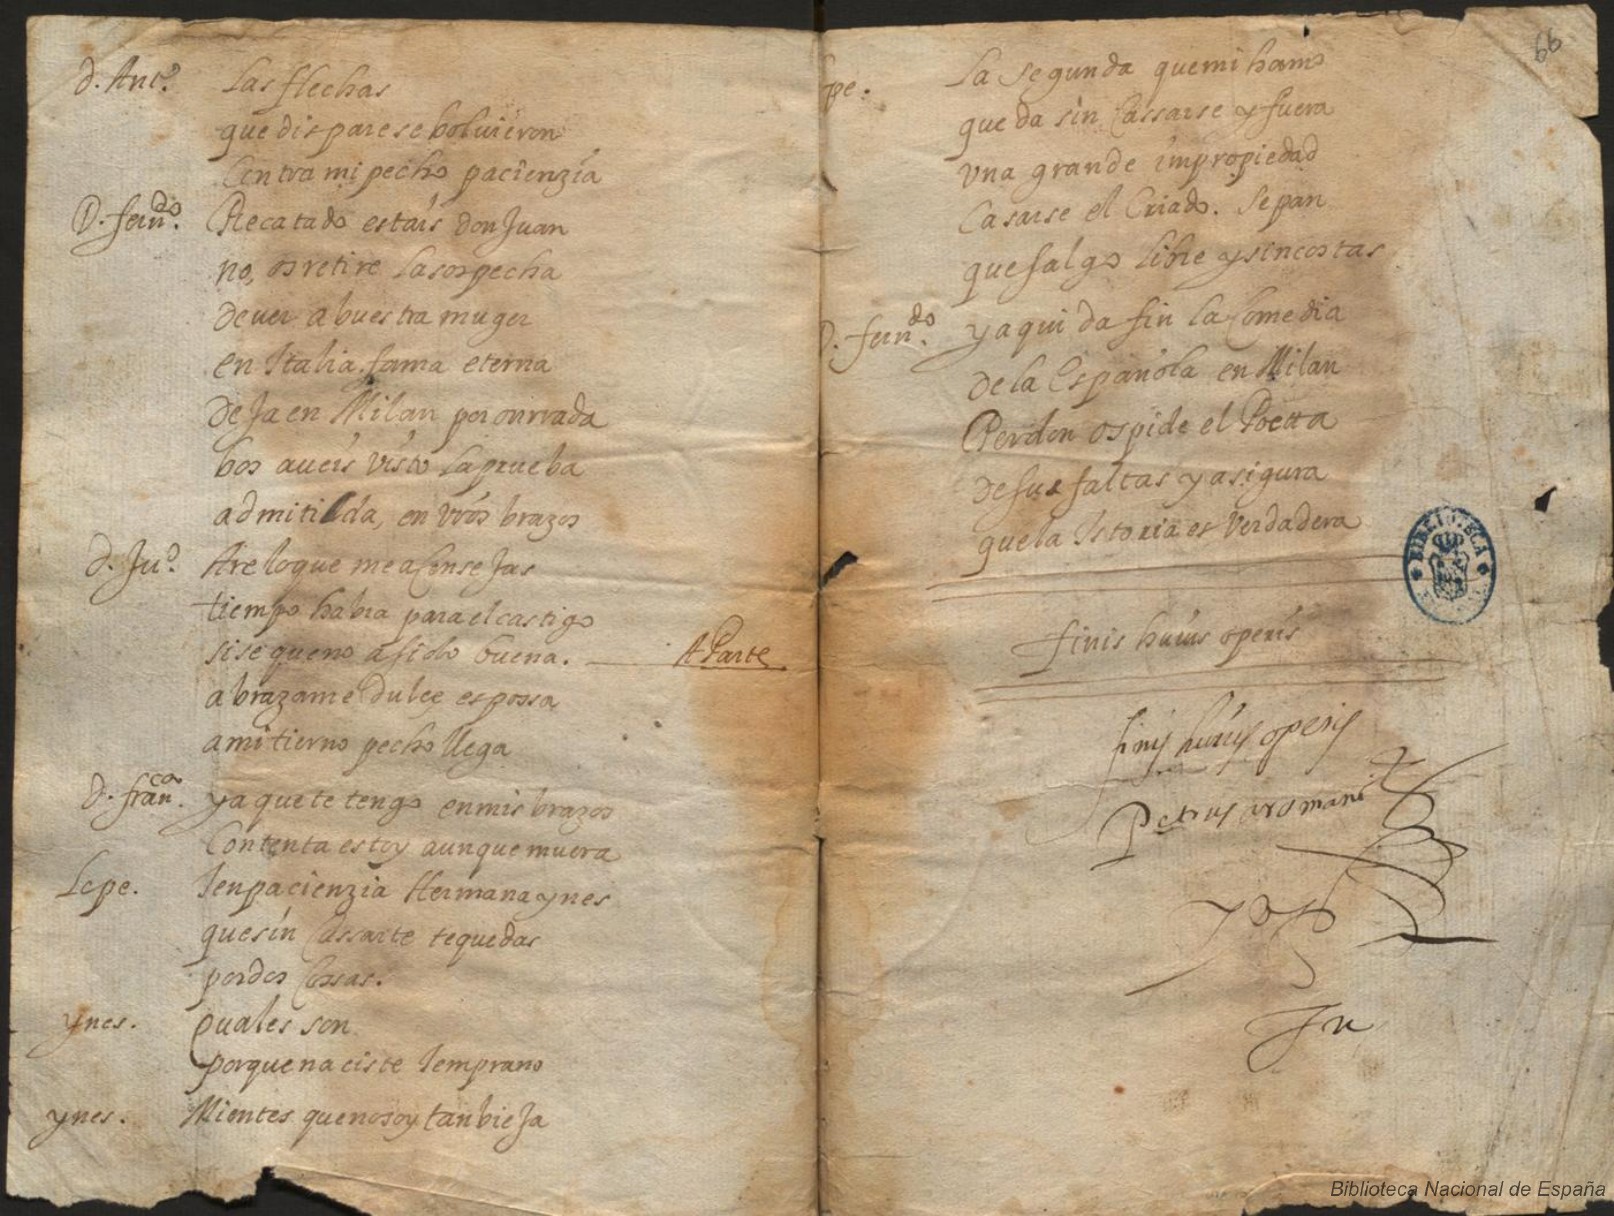 d. Ant.º Las flechas
que dispare se bolvieron
Contra mi pecho pacienzia
D. ferndo. Recatado estais don Juan
no, os retire la sospecha
de ver a buestra muger
en Italia fama eterna
deja en Milan por onrrada
bos aveis visto la prueba
admitilda, en vros brazos
d. Ju.º Are lo que me aconsejas
tiempo habra para el castigo
si se que no a sido buena. A Parte
abrazame dulce espossa
a mi tierno pecho llega
d. franca. ya que te tengo en mis brazos
Contenta estoy aunque muera
Lepe. Ten pacienzia Hermana ynes
que sin Cassarte te quedas
por dos Cossas.
ynes. quales son
porque naciste temprano
ynes. Mientes que no soy tan bieja
pe. La segunda que mi hamo
queda sin Cassarse y fuera
una grande impropiedad
Casarse el Criado. Sepan
que salgo libre y sin costas
D. ferndo. y aqui da fin la Comedia
de la Española en Milan
Perdon os pide el Poetta
de sus faltas y asigura
que la Istoria es Verdadera
finis huius operis
finis huius operis
Petrus
Ju
66
BIBLIOTECA
Biblioteca Nacional de España